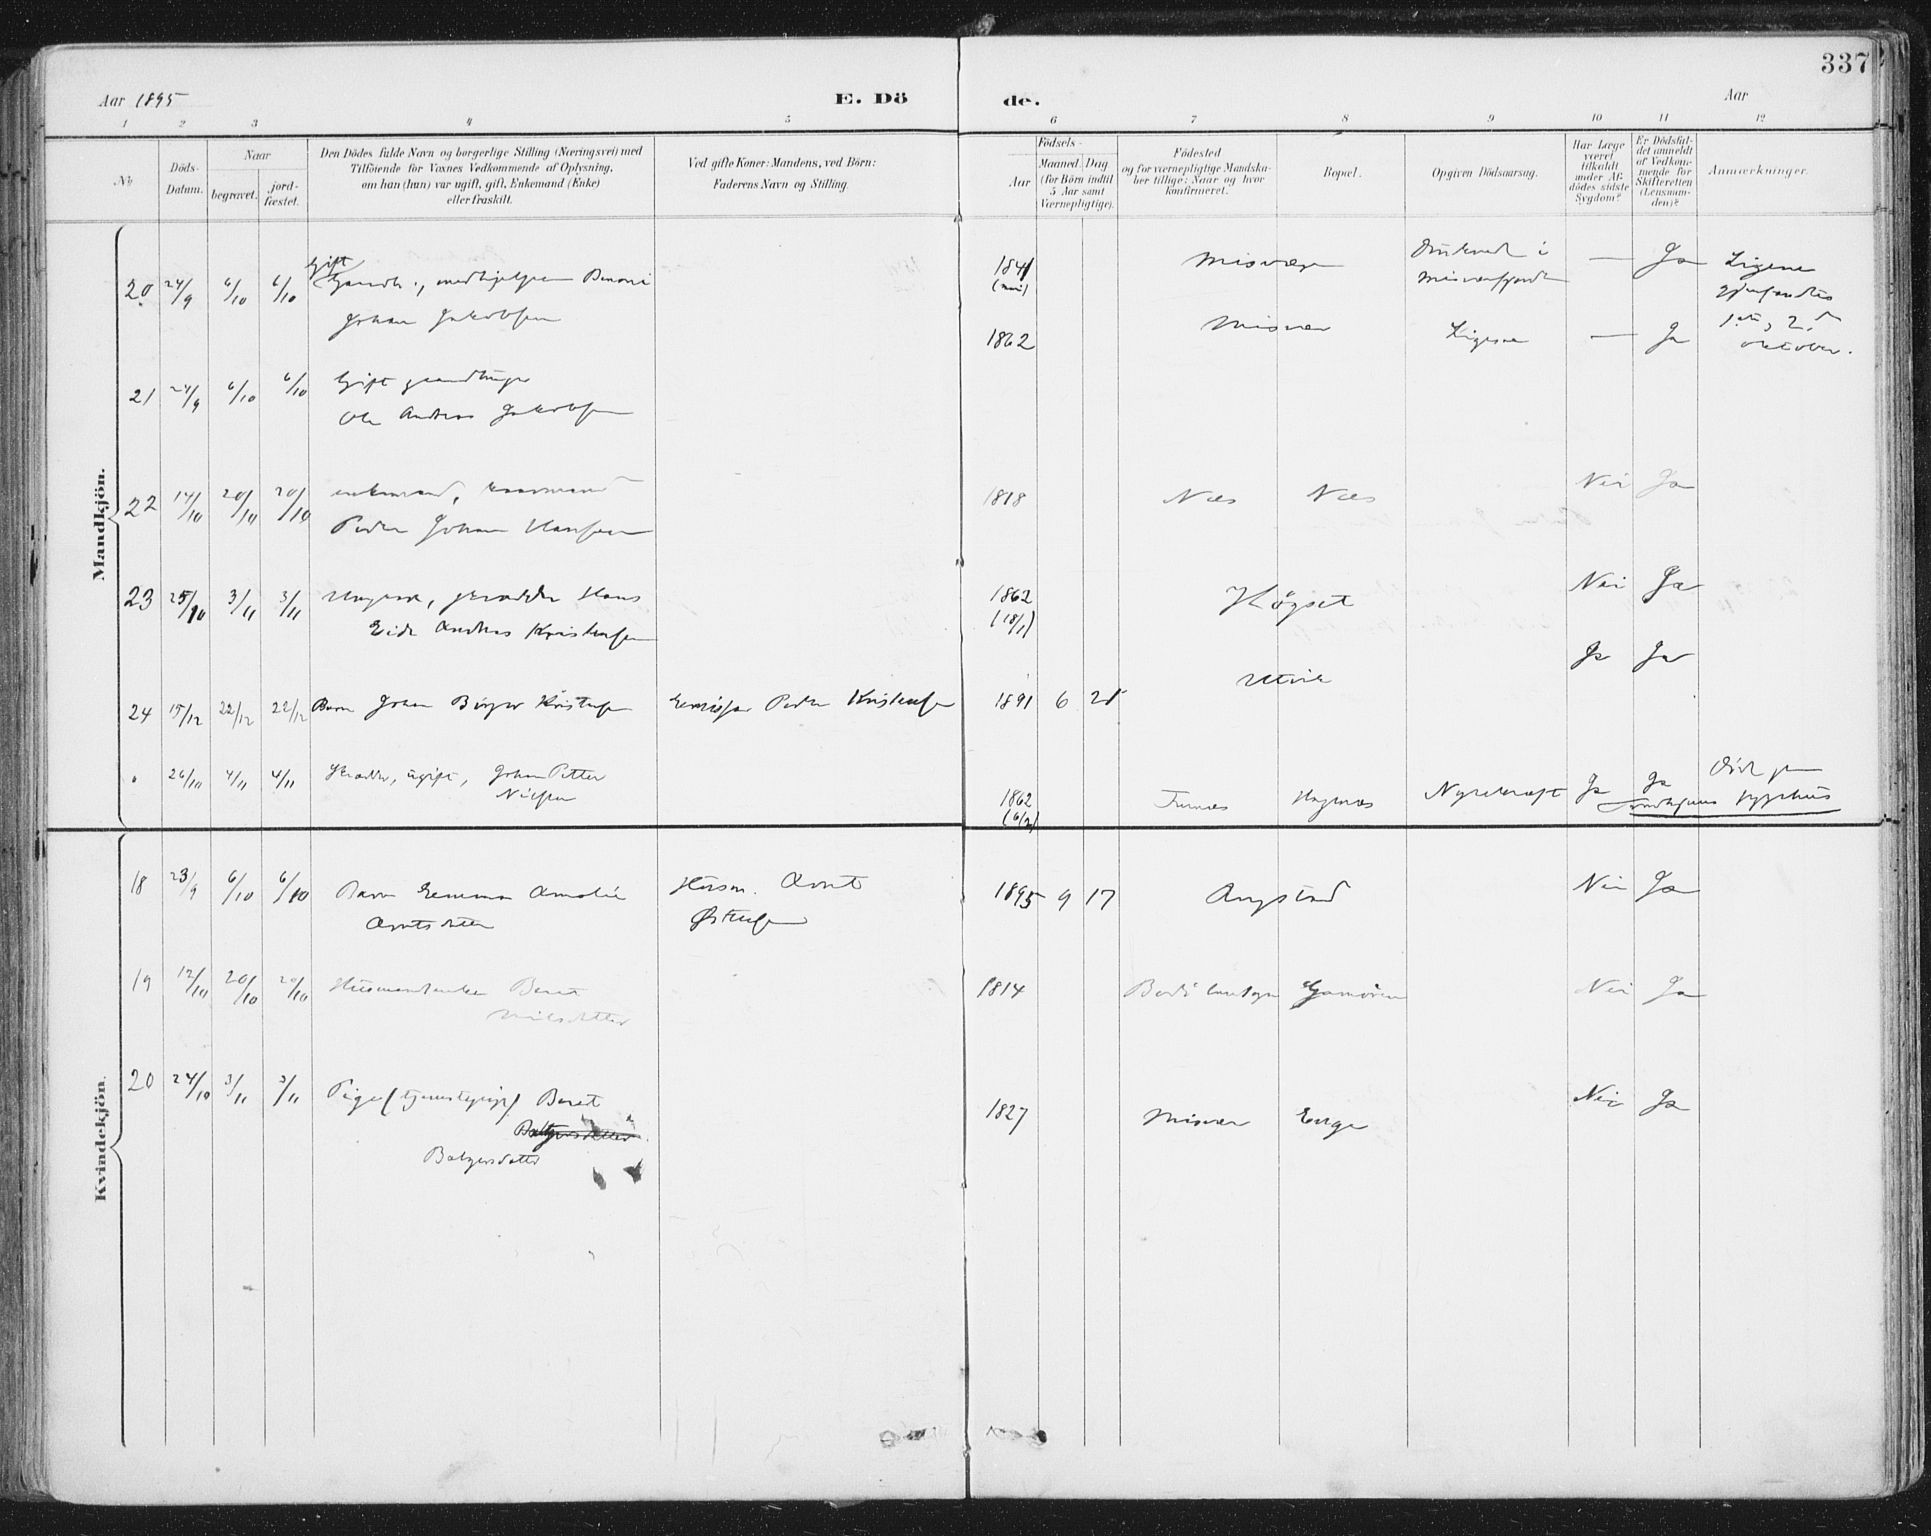 337
Aar 1895
E. Dö
de.
Aar
1 2 3 4 5 6 7 8 9 10 11 12
No
Döds-
Datum.
Naar
begravet.
jord-
fæstet.
Den Dödes fulde Navn og borgerlige Stilling (Næringsvei) med
Tilföiende for Voxnes Vedkommende af Oplysning,
om han (hun) var ugift, gift, Enkemand (Enke)
eller fraskilt.
Ved gifte Koner: Mandens, ved Börn:
Faderens Navn og Stilling.
Födsels-
Aar
Maaned. Dag
(for Börn indtil
5 Aar samt
Værnepligtige).
Födested
og for værnepligtige Mandska-
ber tillige: Naar og hvor
konfirmeret.
Bopæl.
Opgiven Dödsaarsag.
Har Læge
været
tilkaldt
under Af-
dödes sidste
Sygdom?
Er Dödsfal-
det anmeldt
af Vedkom-
mende for
Skifteretten
(Lensman-
den)?
Anmærkninger.
Mandkjön.
Gift
20 24/9 6/10 6/10 Gaardb., medhjelper Benoni
Johan Jakobsen
1841
Misvær
Druknede i
Misværfjorden
— Ja
Ligene
gjenfandtes
1ste, 2.
oktober.
21 24/9 6/10 6/10 Gift gaardbruger
Ole Andreas Jakobsen
1862 Misvær Ligesaa — Ja
22 14/10 20/10 20/10 enkemand, kaarmand
Peder Johan Hansen
1818 Næs Næs Nei Ja
23 25/10 3/11 3/11 Ungkar, skrædder Hans
Eide Andreas Kristensen
1862
(18/1)
Høgset Nei Ja
24 15/12 22/12 22/12 Barn Johan Birger Kristensen
Peder Kristensen
1891 6 21 Utvik Ja Ja
26/10 4/11 4/11 Skrædder, ugift, Johan Petter
Nilsen
1862
(6/2)
Furnæs Hagenæs Nyrekræft Ja Ja
Død paa
sygehus
Kvindekjön.
18 23/9 6/10 6/10 Barn Emma Amalie
Arntsdatter
Husm. Arnt
Østensen
1895 9 17 Angstad Nei Ja
19 12/10 20/10 20/10 Husmandsenke Beret
Nilsdatter
1814 Bodø landsogn Nei Ja
20 24/10 3/11 3/11 Pige (tjenestepige) Beret
Baltzersdatter
Baltzersdatter
1827 Misvær Enge Nei Ja